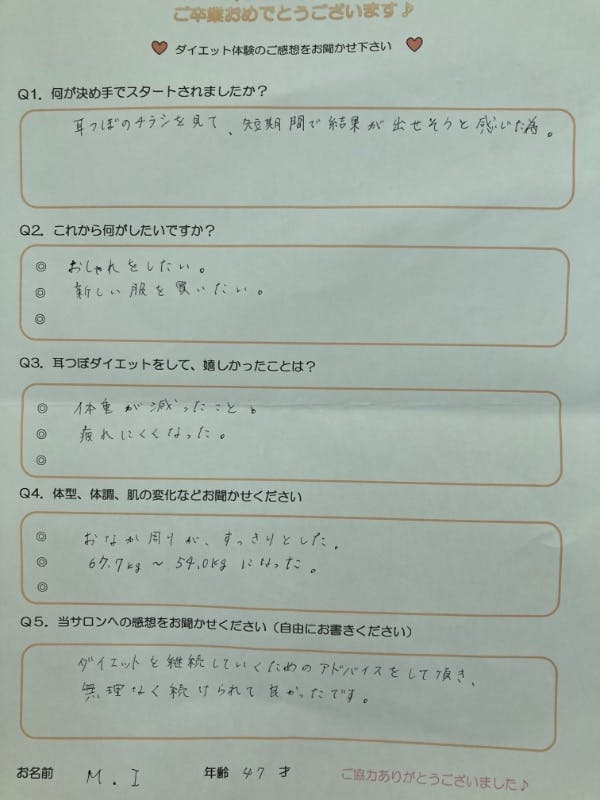 ご卒業おめでとうございます♪
ダイエット体験のご感想をお聞かせ下さい
Q1．何が決め手でスタートされましたか？
耳つぼのチラシを見て、短期間で結果が出せそうと感じた為。
Q2．これから何がしたいですか？
◎ おしゃれをしたい。
◎ 新しい服を買いたい。
◎
Q3．耳つぼダイエットをして、嬉しかったことは？
◎ 体重が減ったこと。
◎ 疲れにくくなった。
◎
Q4．体型、体調、肌の変化などお聞かせください
◎ おなか周りが、すっきりとした。
◎ 67.7kg～54.0kgになった。
◎
Q5．当サロンへの感想をお聞かせください（自由にお書きください）
ダイエットを継続していくためのアドバイスをして頂き、
無理なく続けられて良かったです。
お名前 M.I 年齢 47 才 ご協力ありがとうございました♪